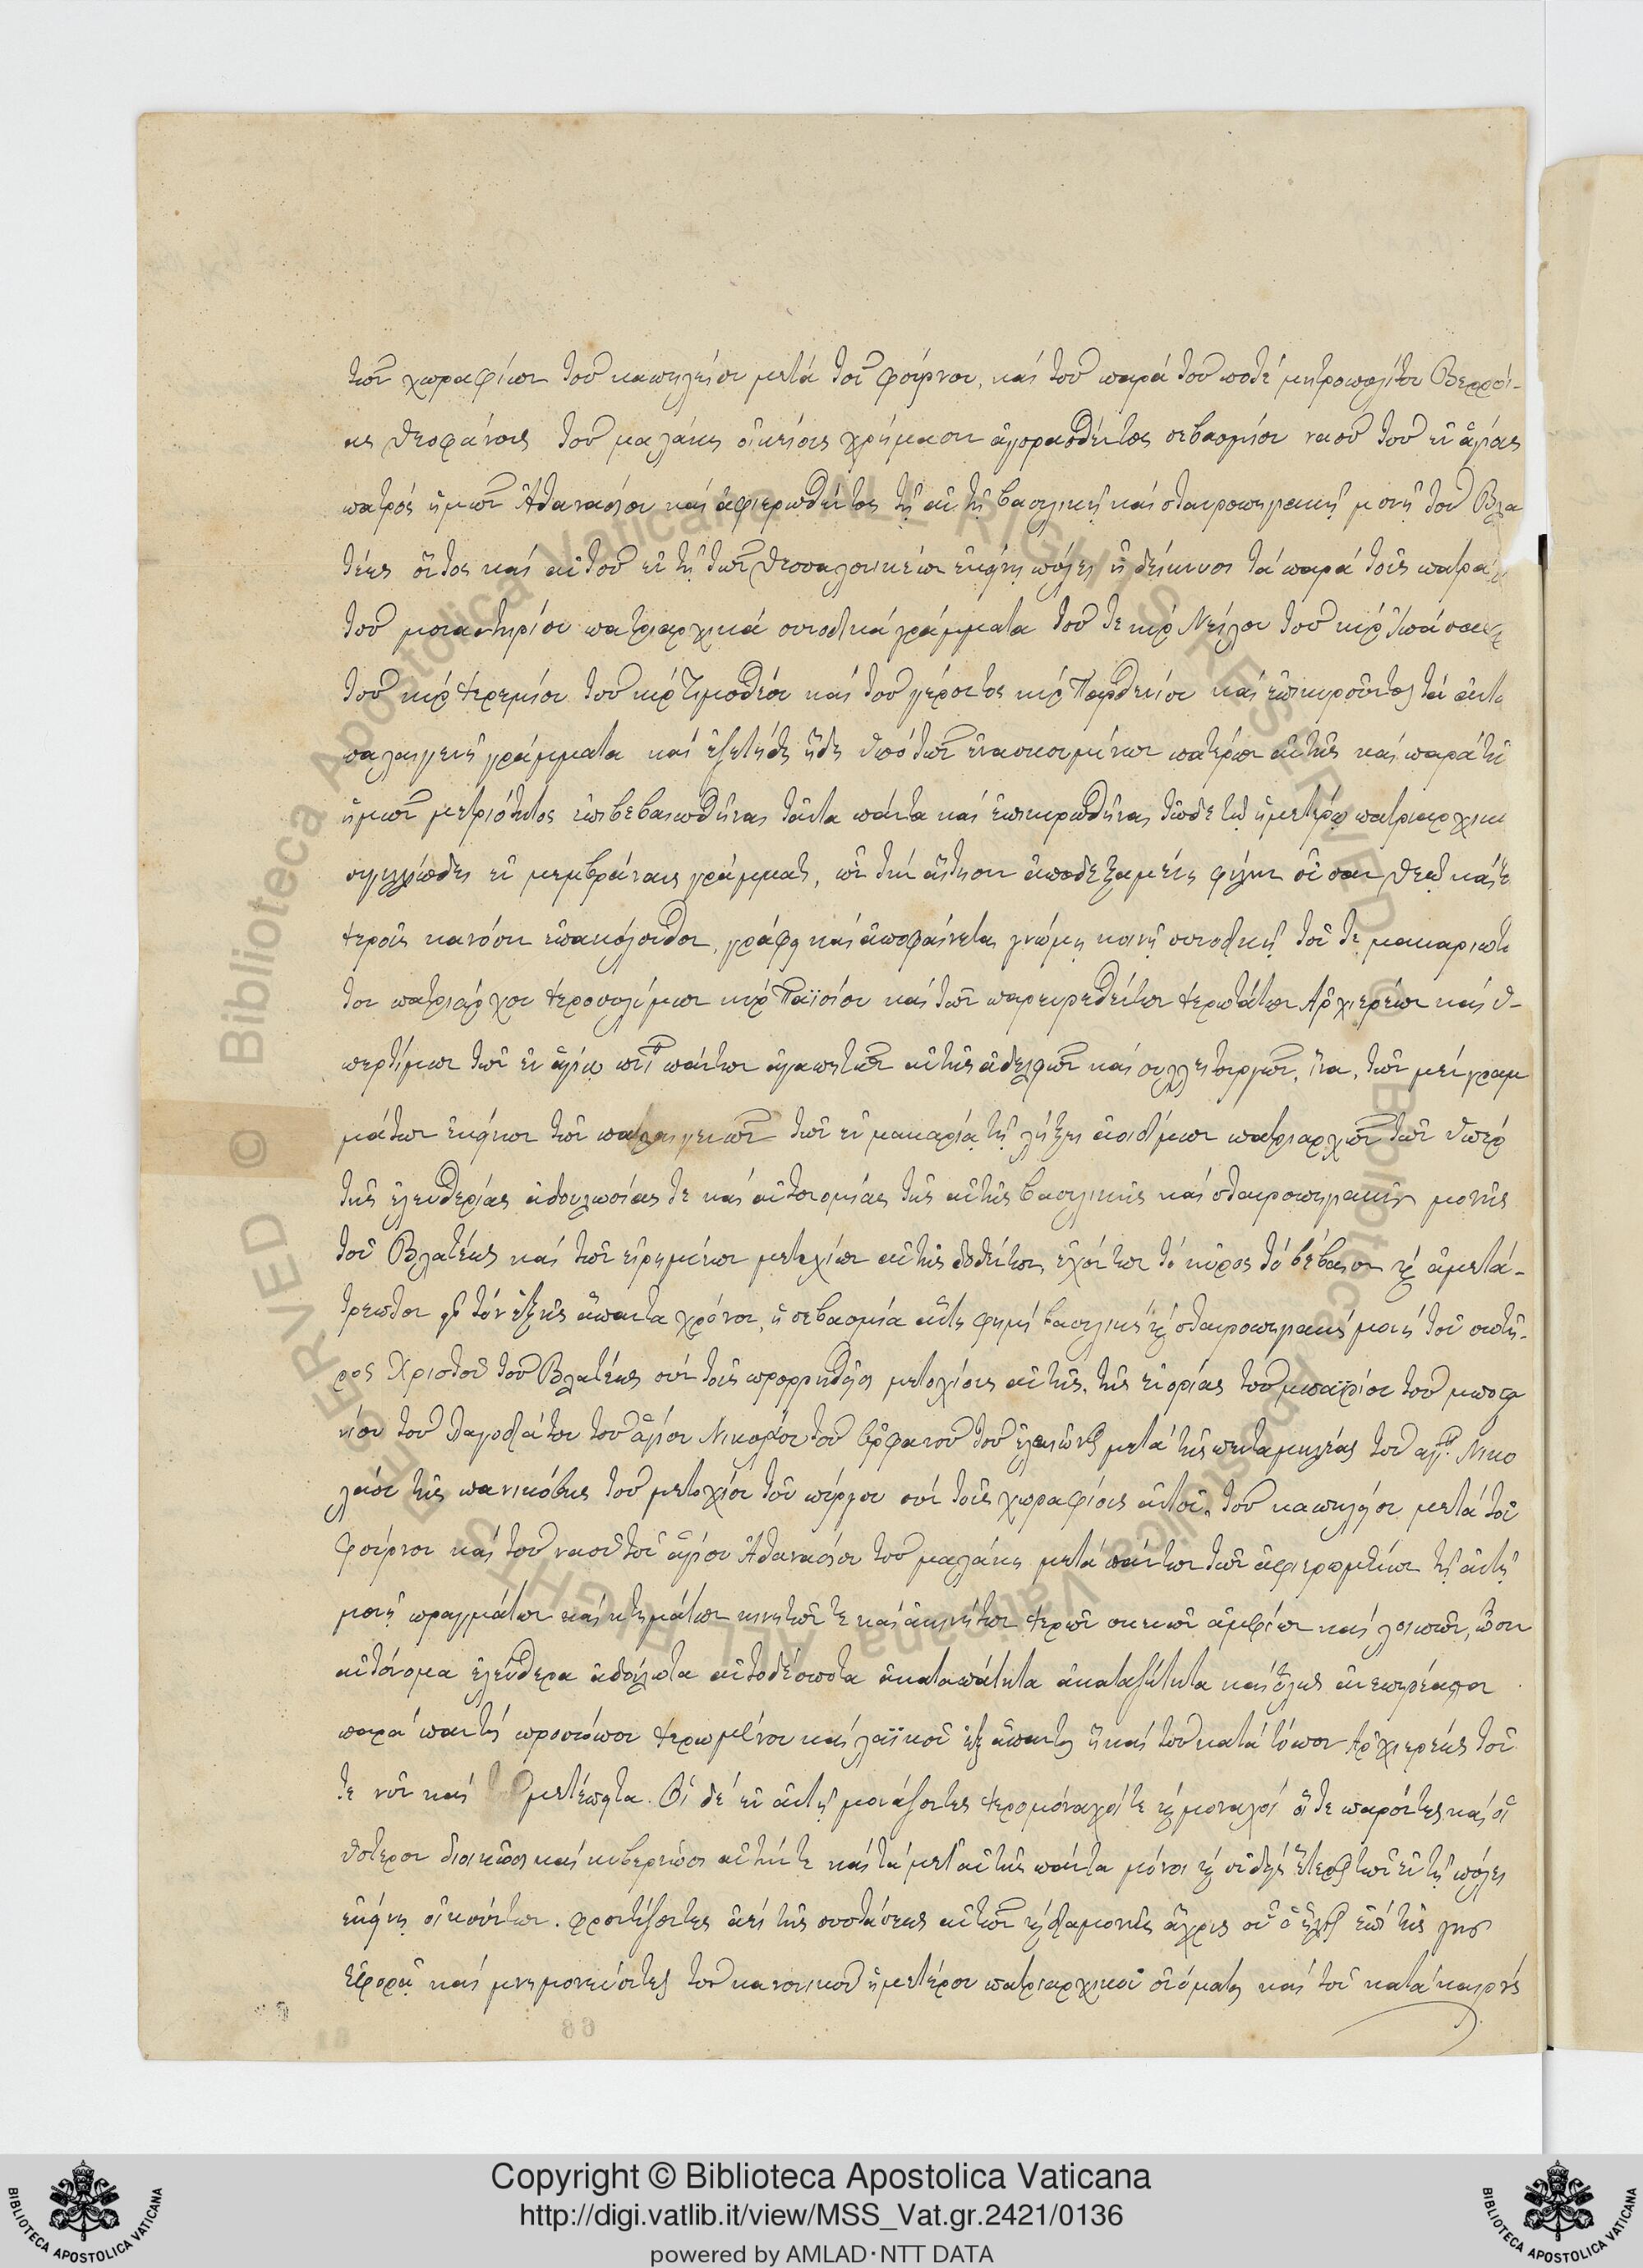 τῶν χωραφίων τοῦ καπηλείου μετὰ τοῦ φούρνου, καὶ τοῦ παρὰ τοῦ ποτὲ μητροπολίτου Βερροί-
ας Θεοφάνους τοῦ μαλάκη οἰκείοις χρήμασιν ἀγορασθέντος σεβασμίου ναοῦ τοῦ ἐν ἁγίοις
πατρὸς ἡμῶν Ἀθανασίου καὶ ἀφιερωθέντος τῇ αὐτῇ βασιλικῇ καὶ σταυροπηγιακῇ μονῇ τοῦ Βλα
τέως ὄντος καὶ αὐτοῦ ἐν τῇ τῶν Θεσσαλονικέων ἐκείνῃ πόλει
τοῦ μοναστηρίου πατριαρχικὰ συνοδικὰ γράμματα τοῦ τε κὺρ Νείλου τοῦ κὺρ
τοῦ κὺρ Ἱερεμίου τοῦ κὺρ Τιμοθέου καὶ τοῦ γέροντος κὺρ Παρθενίου καὶ ἐπικυροῦντος τὰ
παλαιγενῆ γράμματα καὶ ἐζητήθη ἤδη ὑπὸ τῶν ἐνασκουμένων πατέρων αὐτῆς καὶ παρὰ τῆς
ἡμῶν μετριότητος ἐπιβεβαιωθῆναι ταῦτα πάντα καὶ ἐπικυρωθῆναι τῷδε τῷ ἡμετέρῳ πατριαρχικῷ
σιγιλλιώδει ἐν μεμβράναις γράμματι, ὧν τὴν αἴτησιν ἀποδεξαμένη σὺν Θεῷ καὶ τοῖς
ἱεροῖς κανόσιν ἐπακόλουθον, γράφει καὶ ἀποφαίνεται γνώμῃ κοινῇ συνοδικῇ τοῦ τε μακαριωτά
του πατριάρχου Ἱεροσολύμων κὺρ Παϊσίου καὶ τῶν παρευρεθέντων ἱερωτάτων Ἀρχιερέων καὶ ὑ-
περτίμων τῶν ἐν ἁγίῳ πνι πάντων ἀγαπητῶν αὐτῆς ἀδελφῶν καὶ συλλειτουργῶν, ἵνα, τῶν μὲν γραμ
μάτων ἐκείνων τῶν παλαιγενῶν τῶν ἐν μακαρίᾳ τῇ λήξει ἀοιδίμων πατριαρχῶν τῶν ὑπὲρ
τῆς ἐλευθερίας ἀδουλωσίας τε καὶ αὐτονομίας τῆς αὐτῆς βασιλικῆς καὶ σταυροπηγιακῆς μονῆς
τοῦ Βλατέως καὶ τῶν εἰρημένων μετοχίων αὐτῆς δοθέντων ἐχόντων τὸ κῦρος τὸ βέβαιον κ̀ ἀμετά-
τρεπτον εἰς τὸν ἑξῆς ἅπαντα χρόνον, ἡ σεβασμία αὕτη φημὶ βασιλικὴ κ̀ σταυροπηγιακὴ μονὴ τοῦ σωτῆ-
ρος Χριστοῦ τοῦ Βλατέως σὺν τοῖς προρρηθεῖσι μετοχίοις αὐτῆς, τῆς ἐνορίας τοῦ μπαϊρίου τοῦ
τοῦ Λαγοδιάτου τοῦ ἁγίου Νικολάου τοῦ ὀρφανοῦ τοῦ ἐλαιῶνος μετὰ τῆς τοῦ ἁγίου Νικο
λάου τῆς τοῦ μετοχίου τοῦ πύργου σὺν τοῖς χωραφίοις αὐτοῦ, τοῦ καπηλείου μετὰ τοῦ
φούρνου καὶ τοῦ ναοῦ τοῦ ἁγίου Ἀθανασίου τοῦ μαλάκη μετὰ πάντων τῶν ἀφιερωμένων τῇ αὐτῇ
μονῇ πραγμάτων καὶ κτημάτων κινητῶν τε καὶ ἀκινήτων ἱερῶν σκευῶν ἀμφίων καὶ λοιπῶν, ὦσιν
αὐτόνομα ἐλεύθερα ἀδούλωτα αὐτοδέσποτα ἀκαταπάτητα ἀκαταζήτητα καὶ ὅλως ἀνεπηρέαστα
παρὰ παντὸς προσώπου ἱερωμένου καὶ λαϊκοῦ ἐξ ἅπαντος ἢ καὶ τοῦ κατὰ τόπον Ἀρχιερέως τοῦ
τε νῦν καὶ μετέπειτα. Οἱ δὲ ἐν αὐτῇ μονάζοντες ἱερομόναχοί τε κ̀ μοναχοὶ οἵ τε παρόντες καὶ οἱ
ὕστερον διοικῶσι καὶ κυβερνῶσι αὐτήν τε καὶ τὰ μετ αὐτῆς πάντα μόνοι κ̀ οὐδεὶς ἕτερος τῶν ἐν τῇ πόλει
ἐκείνῃ οἰκούντων. φροντίζοντες ἀεὶ τῆς συστάσεως αὐτῶν κ̀ διαμονῆς ἄχρις οὗ ὁ ἥλιος ἐπὶ τῆς γῆς
ἐφορᾷ καὶ μνημονεύοντες τοῦ κανονικοῦ ἡμετέρου πατριαρχικοῦ ὀνόματος καὶ τοῦ κατὰ καιροὺς
Copyright © Biblioteca Apostolica Vaticana
http://digi.vatlib.it/view/MSS_Vat.gr.2421/0136
powered by AMLAD·NTT DATA
BIBLIOTECA APOSTOLICA VATICANA
BIBLIOTECA APOSTOLICA VATICANA